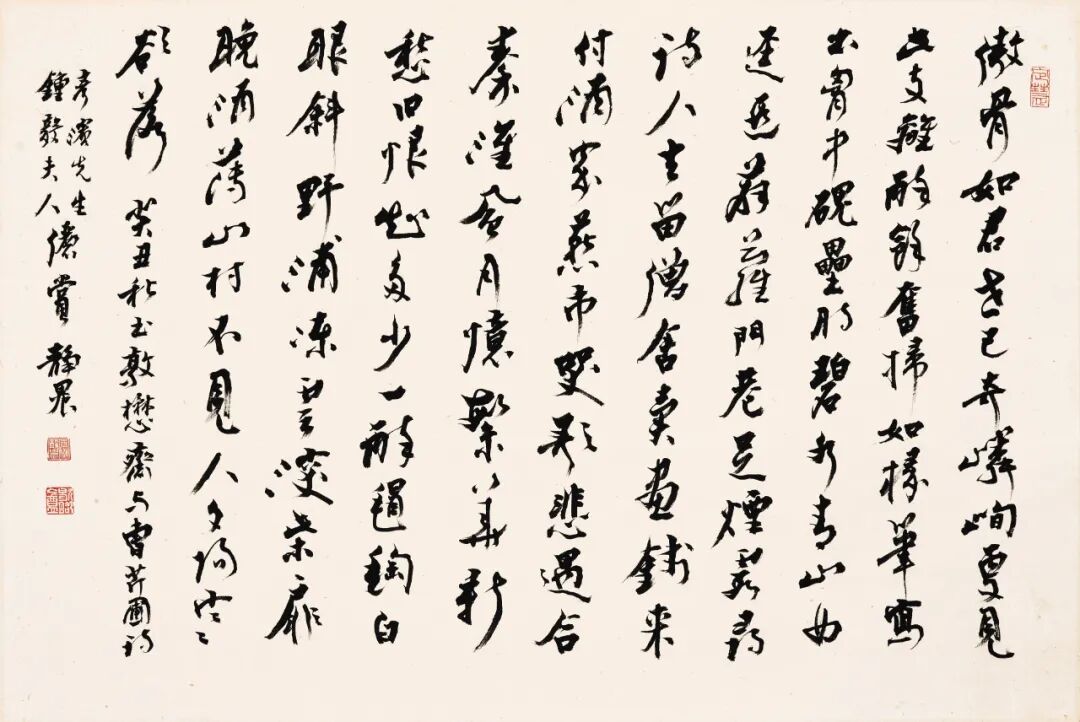 傲骨如君世已奇嶙峋更見
此支離醉餘奮掃如椽筆寫
出胸中磈壘時碧水青山曲
逕遐薜蘿門巷足煙霞尋
詩人去留僧舍賣畫錢來
付酒家燕市哭歌悲遇合
秦淮風月憶繁華新
愁旧恨知多少一醉醄白
眼斜野浦凍雲深柴扉
晚烟薄山村不見人夕陽寒
欲落 癸丑秋書敦懋齋与曹芹圃詩
彥濱先生
鍾毅夫人儷賞 靜農